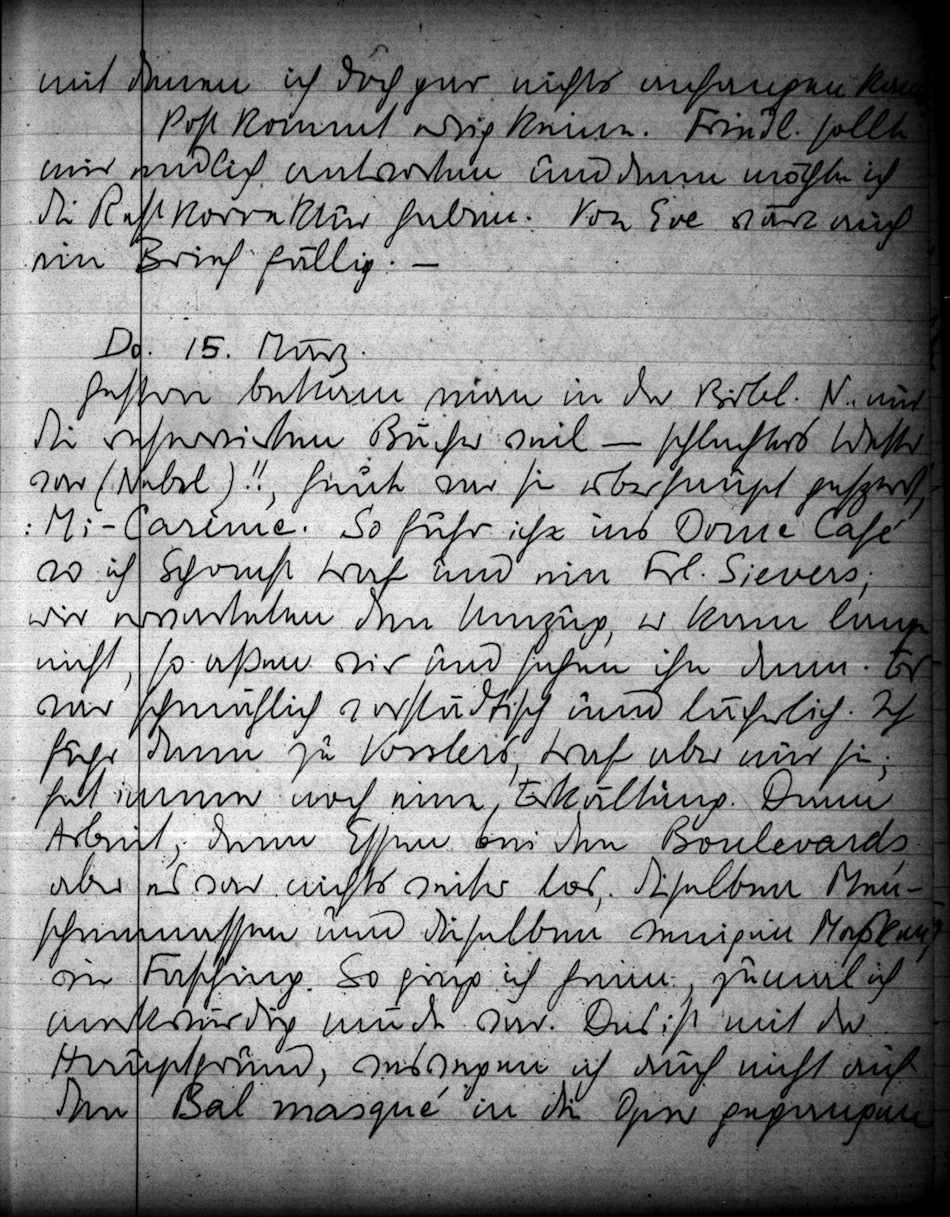 mit denen ich doch gar nichts anfangen kann
Post kommt ewig keine. Friedl. sollte
mir endlich antworten und dann möchte ich
die Rest Korrektur haben. Von Eve wäre auch
ein Brief fällig. —
Do. 15. März.
Gestern bekam man in der Bibl. N. nur
die reservierten Bücher weil — schlechtes Wetter
war (Nebel)!!, heute war sie überhaupt gesperrt,
: Mi-Carême. So fuhr ich ins Dome Café
wo ich Schonest traf und ein Frl. Sievers,
wir erwarteten den Umzug, er kam lange
nicht, so assen wir und sahen ihn dann. Er
war schmählich vorstädtisch und lächerlich. Ich
fuhr dann zu Vosslers, traf aber nur sie;
hat immer noch eine Erkältung. Dann
Arbeit, dann Essen bei den Boulevards
aber es war nichts weiter los, dieselben Men-
schenmassen und dieselben wenigen Masken
wie Fasching. So ging ich heim, zumal ich
merkwürdig müde war. Das ist mit der
Hauptgrund, weswegen ich auch nicht auf
den Bal masqué in die Oper gegangen